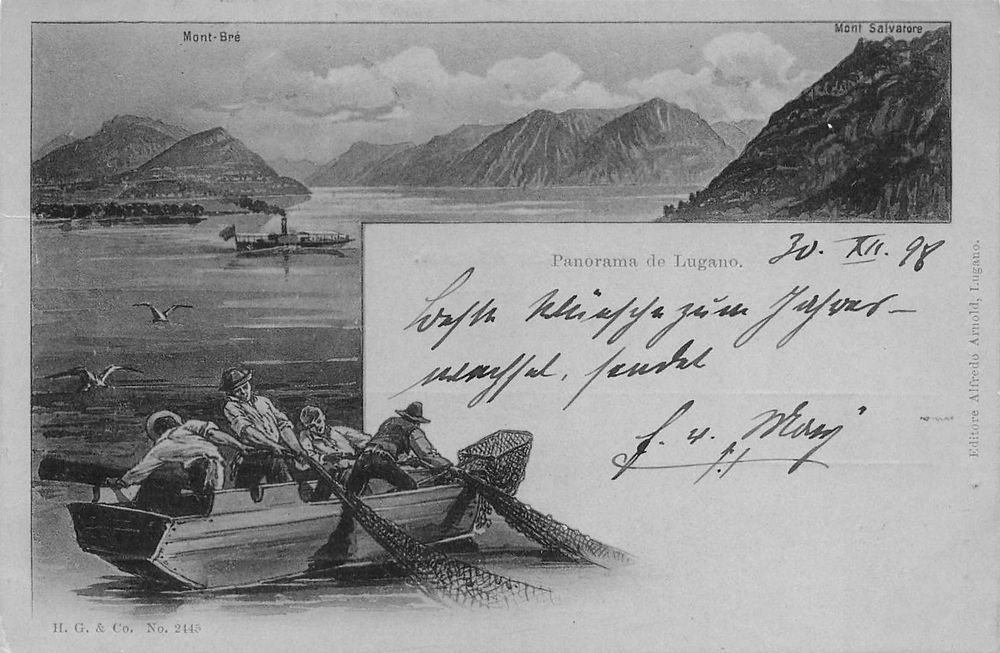 Mont-Bré
Mont Salvatore
Panorama de Lugano.
30. XII. 98
Beste Wünsche zum Jahres-
wechsel, sendet
Editore Alfredo Arnold, Lugano.
H. G. & Co. No. 2445